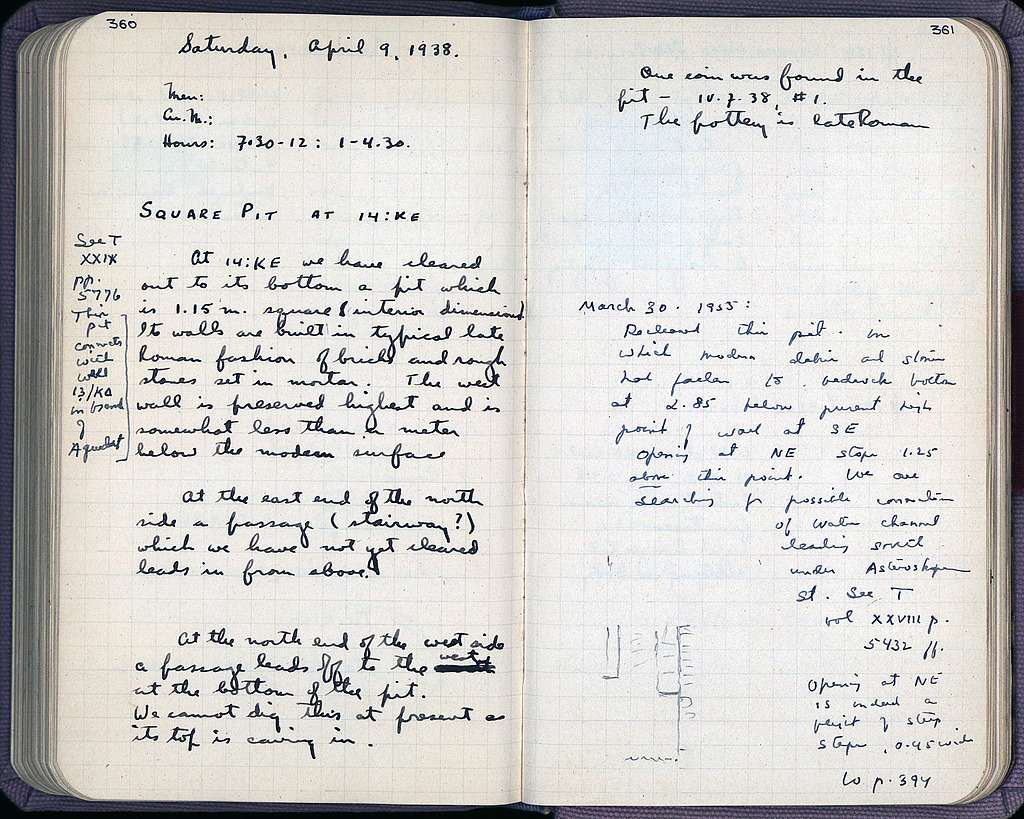 360
Saturday, April 9, 1938.
Men:
An.M.:
Hours: 7.30-12: 1-4.30.
SQUARE PIT AT 14:KE
See T
XXIX
pp.
5776
This
pit
connects
with
well
13/KΔ
in branch
of
Aqueduct
At 14:KE we have cleared
out to its bottom a pit which
is 1.15 m. square (interior dimensions).
Its walls are built in typical late
Roman fashion of bricks and rough
stones set in mortar. The west
wall is preserved highest and is
somewhat less than a meter
below the modern surface
At the east end of the north
side a passage (stairway?)
which we have not yet cleared
leads in from above.
At the north end of the west side
a passage leads off to the west
at the bottom of the pit.
We cannot dig this at present as
its top is caving in.
361
One coin was found in the
pit - 10.7.38, #1.
The pottery is late Roman
March 30. 1955:
Recleared this pit. in
which modern debris and stones
had fallen to bedrock bottom
at 2.85 below present high
point of wall at SE
Opening at NE stops 1.25
above this point. We are
searching for possible connection
of water channel
leading south
under Asteroskopeion
St. See T
vol XXVIII p.
5432 ff.
Opening at NE
is indeed a
flight of step
steps, 0.45 wide
to p. 394